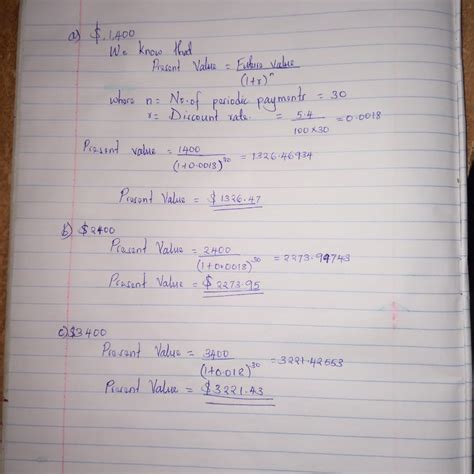 a) $.1,400
We know that
Present Value = Future value
(1+r)^n
where n = No. of periodic payments = 30
r = Discount rate = 5.4 = 0.0018
100×30
Present value = 1400 = 1326.46934
(1+0.0018)^30
Present Value = $1326.47
b) $2400
Present Value = 2400 = 2273.94743
(1+0.0018)^30
Present Value = $2273.95
c) $3400
Present Value = 3400 = 3221.42553
(1+0.018)^30
Present Value = $3221.43